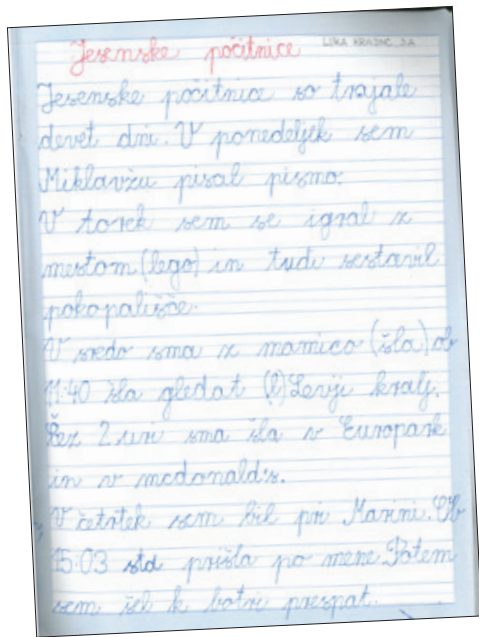 Jesenske počitnice LUKA KRAJNC, 3.A
Jesenske počitnice so trajale
devet dni. V ponedeljek sem
Miklavžu pisal pismo.
V torek sem se igral z
mestom (lego) in tudi sestavil
pokopališče.
V sredo sma z mamico (šla) ob
11:40 šla gledat (l) Levji kralj.
Čez 2 uri sma šla v Europark
in v mcdonald's.
V četrtek sem bil pri Marini. Ob
15:03 sta prišla po mene. Potem
sem šel k botri prespat.